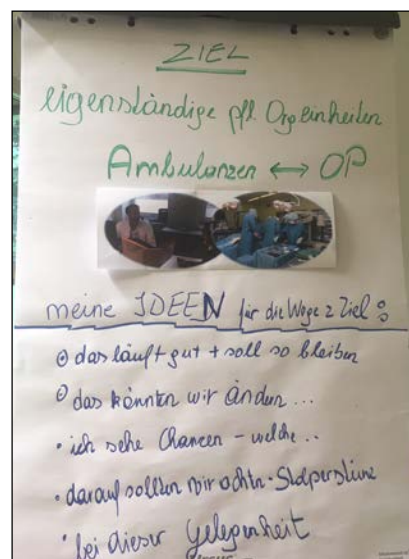 ZIEL
eigenständige pfl Orgeinheiten
Ambulanzen ↔ OP
meine IDEEN für die Wege z Ziel:
das läuft gut + soll so bleiben
das könnten wir ändern ...
• ich sehe Chancen - welche ..
• darauf sollten wir achten - Stolpersteine
• bei dieser Gelegenheit